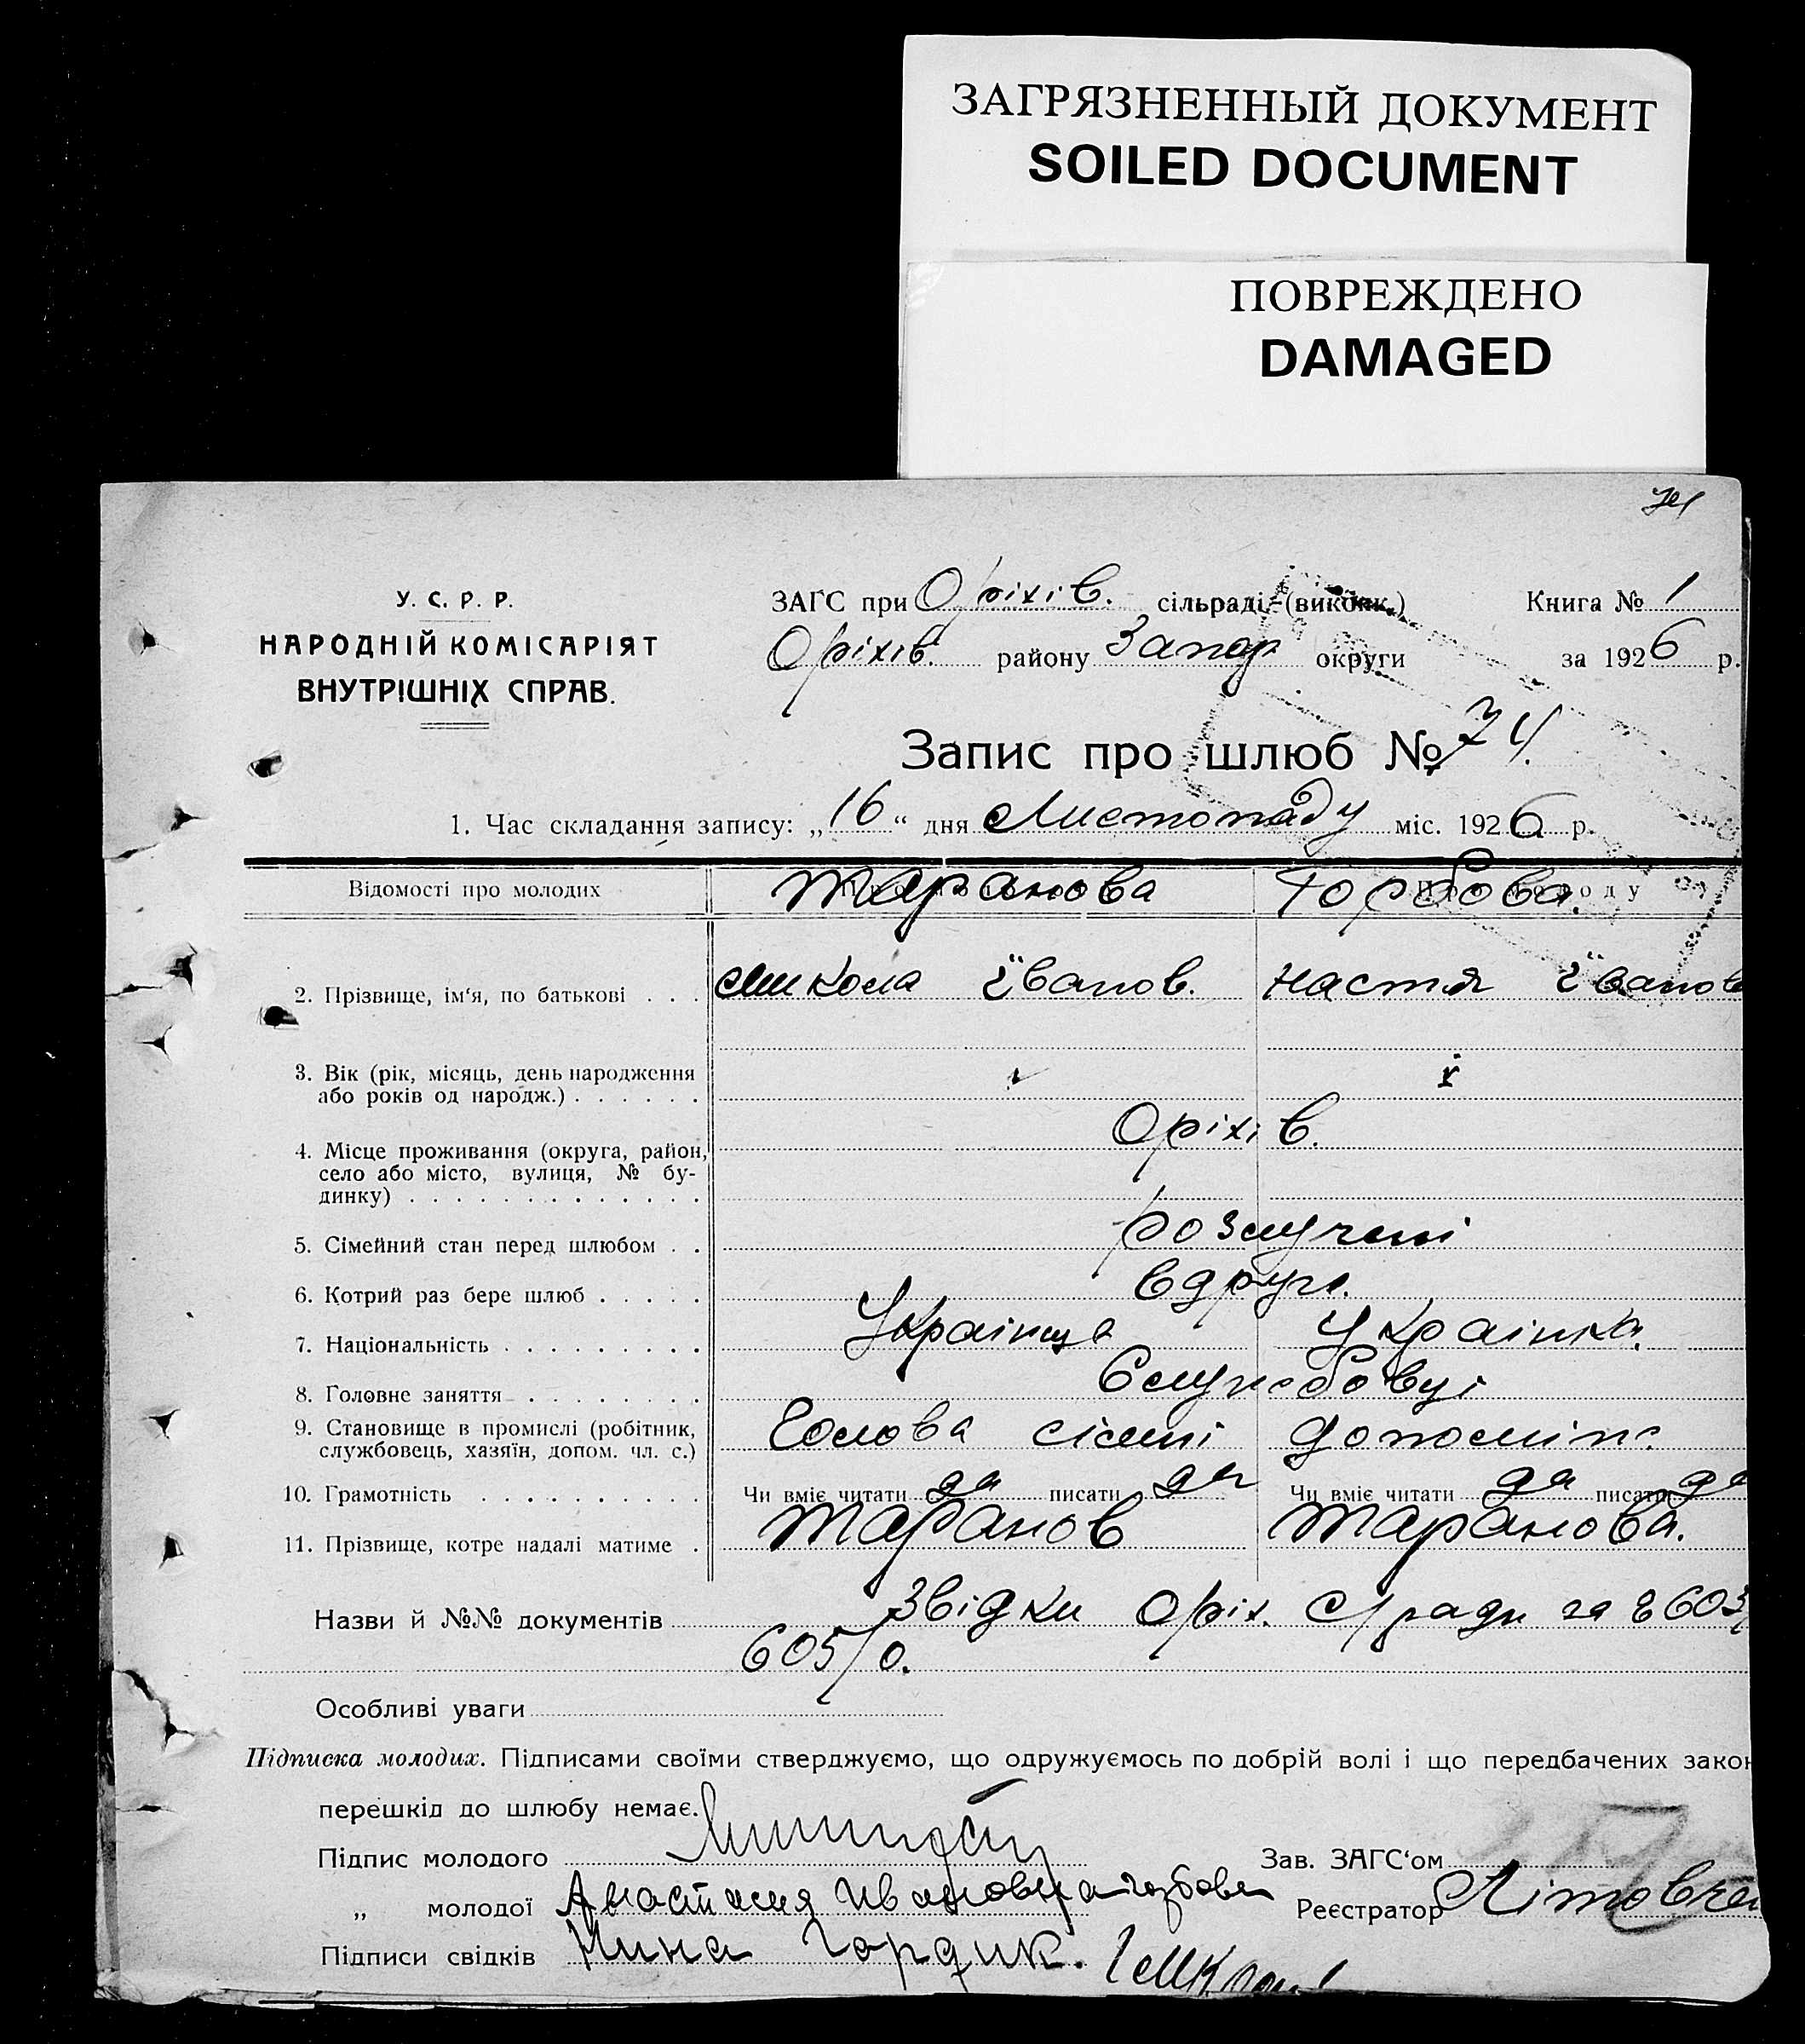 ЗАГРЯЗНЕННЫЙ ДОКУМЕНТ
SOILED DOCUMENT
ПОВРЕЖДЕНО
DAMAGED
У. С. Р. Р.
НАРОДНІЙ КОМІСАРІЯТ
ВНУТРІШНІХ СПРАВ.
ЗАГС при Оріхів. сільраді-(виконк.) Книга № 1
Оріхів. району Запор округи за 1926 р.
Запис про шлюб № 74.
1. Час складання запису: „16“ дня Листопаду міс. 1926 р.
Відомості про молодих Таранова Горбова.
2. Прізвище, ім‘я, по батькові . . . Микола Іванов. Настя Іванов
3. Вік (рік, місяць, день народження
або років од народж.) . . . . . .
Оріхів.
4. Місце проживання (округа, район,
село або місто, вулиця, № бу-
динку) . . . . . . . . . . . . .
5. Сімейний стан перед шлюбом . . розлучені
6. Котрий раз бере шлюб . . . . . вдруге.
7. Національність . . . . . . . . . Українець Українка.
8. Головне заняття . . . . . . . . Службовці
9. Становище в промислі (робітник,
службовець, хазяїн, допом. чл. с.) Голова сімї допоміж.
10. Грамотність . . . . . . . . . . Чи вміє читати да писати да Чи вміє читати да писати да
11. Прізвище, котре надалі матиме . Таранов Таранова.
Назви й №№ документів Звідки Оріх. С/ради за № 603/
605/0.
Особливі уваги
Підписка молодих. Підписами своїми стверджуємо, що одружуємось по добрій волі і що передбачених закон
перешкід до шлюбу немає.
Підпис молодого Зав. ЗАГС‘ом
„ молодої Анастасия Ивановна Горбова Реєстратор Літовчен
Підписи свідків Нина Гордик.